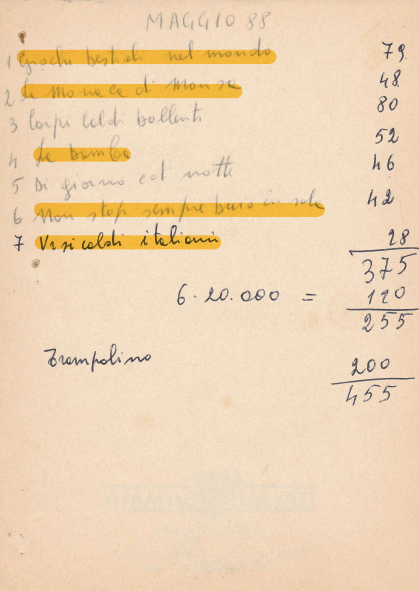 MAGGIO 88
1 Giochi bestiali nel mondo 79
2 La Monaca di Monza 48
3 Corpi caldi bollenti 80
4 La bimba 52
5 Di giorno ed notte 46
6 Non stop sempre buio in sala 42
7 Vizi caldi italiani 28
375
6 . 20.000 = 120
255
Trampolino 200
455